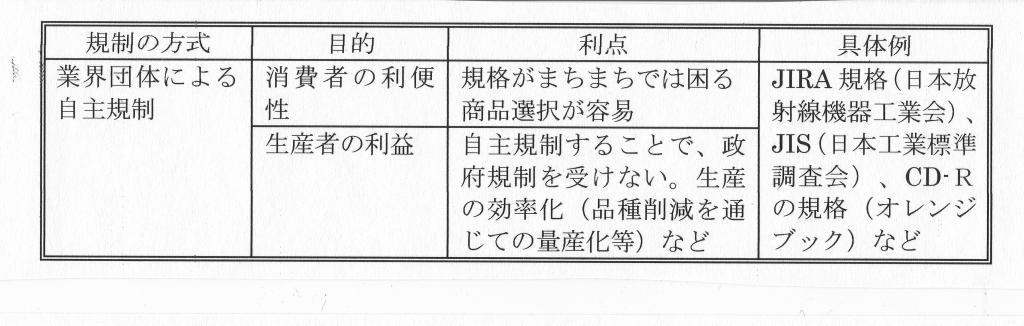 規制の方式
目的
利点
具体例
業界団体による
自主規制
消費者の利便
性
規格がまちまちでは困る
商品選択が容易
生産者の利益
自主規制することで、政
府規制を受けない。生産
の効率化（品種削減を通
じての量産化等）など
JIRA 規格（日本放
射線機器工業会）、
JIS（日本工業標準
調査会）、CD-Ｒ
の規格（オレンジ
ブック）など